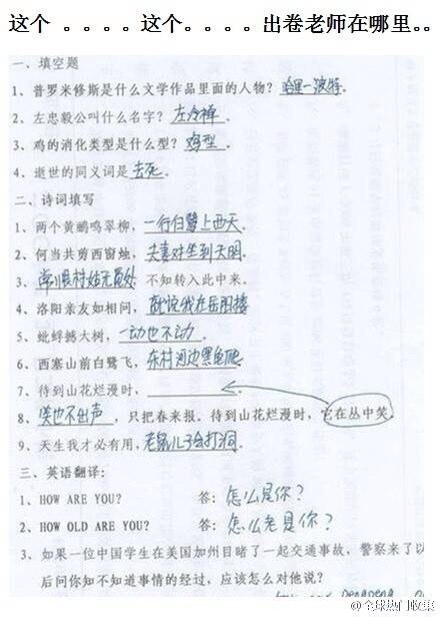 这个 。。。。这个。。。。出卷老师在哪里。。
一、填空题
1、普罗米修斯是什么文学作品里面的人物？哈里一波特。
2、左忠毅公叫什么名字？左冷禅。
3、鸡的消化类型是什么型？鸡型。
4、逝世的同义词是去死。
二、诗词填写
1、两个黄鹂鸣翠柳，一行白鹭上西天。
2、何当共剪西窗烛，夫妻对坐到天明。
3、常恨春归无觅处 不知转入此中来。
4、洛阳亲友如相问，就说我在岳阳楼
5、蚍蜉撼大树，一动也不动。
6、西塞山前白鹭飞，东村河边黑龟爬。
7、待到山花烂漫时，
8、俏也不出声，只把春来报。待到山花烂漫时，它在丛中笑
9、天生我才必有用，老鼠儿子会打洞。
三、英语翻译：
1、HOW ARE YOU? 答：怎么是你？
2、HOW OLD ARE YOU? 答：怎么老是你？
3、如果一位中国学生在美国加州目睹了一起交通事故，警察来了以
后问你知不知道事情的经过，应该怎么对他说？
@全球热门收集